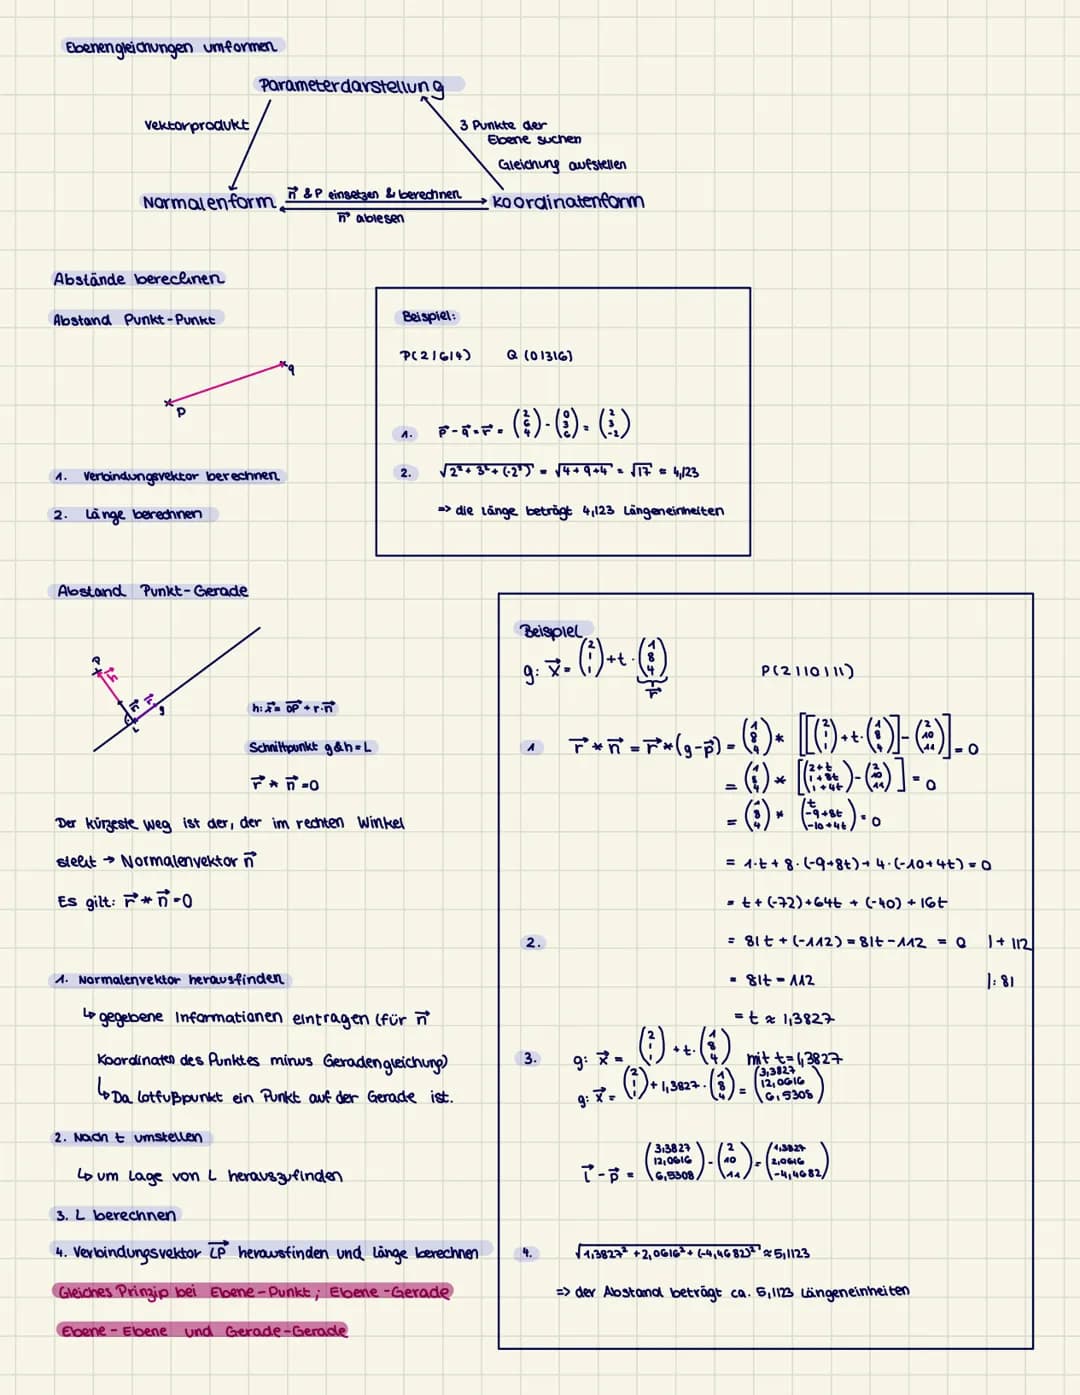 Ebenengleichungen umformen
Parameterdarstellung
Vektorprodukt
3 Punkte der
Ebene suchen
Gleichung aufstellen
Normalenform
n⃗ & P einsetzen & berechnen
n⃗ ablesen
Koordinatenform
Abstände berechnen
Abstand Punkt-Punkt
P
q
1. Verbindungsvektor berechnen
2. Länge berechnen
Beispiel:
P(2|6|4) Q(0|3|6)
1. p⃗ - q⃗ = r⃗ = (2 6 4) - (0 3 6) = (2 3 -2)
2. √(2² + 3² + (-2²)) = √(4+9+4) = √17 ≈ 4,123
=> die Länge beträgt 4,123 Längeneinheiten
Abstand Punkt-Gerade
P
h⃗
n⃗ r⃗
g
L
h: x⃗ = OP⃗ + r·n⃗
Schnittpunkt g & h = L
r⃗ * n⃗ = 0
Der kürzeste Weg ist der, der im rechten Winkel
steht → Normalenvektor n⃗
Es gilt: r⃗ * n⃗ = 0
1. Normalenvektor herausfinden
↳ gegebene Informationen eintragen (für n⃗
Koordinaten des Punktes minus Geradengleichung)
↳ Da Lotfußpunkt ein Punkt auf der Gerade ist.
2. Nach t umstellen
↳ um Lage von L herauszufinden
3. L berechnen
4. Verbindungsvektor LP⃗ herausfinden und Länge berechnen
Gleiches Prinzip bei Ebene-Punkt; Ebene-Gerade
Ebene-Ebene und Gerade-Gerade
Beispiel
g: x⃗ = (2 1 1) + t · (1 8 4)
r⃗
P(2|10|11)
1 r⃗ * n⃗ = r⃗ * (g-p⃗) = (1 8 4) * [[(2 1 1) + t · (1 8 4)] - (2 10 11)] = 0
= (1 8 4) * [(2+t 1+8t 1+4t) - (2 10 11)] = 0
= (1 8 4) * (t -9+8t -10+4t) = 0
= 1·t + 8·(-9+8t) + 4·(-10+4t) = 0
= t + (-72) + 64t + (-40) + 16t
2. = 81t + (-112) = 81t - 112 = 0 |+ 112
= 81t = 112 |: 81
= t ≈ 1,3827
3. g: x⃗ = (2 1 1) + t · (1 8 4) mit t = 1,3827
g: x⃗ = (2 1 1) + 1,3827 · (1 8 4) = (3,3827 12,0616 6,5308)
l⃗ - p⃗ = (3,3827 12,0616 6,5308) - (2 10 11) = (1,3827 2,0616 -4,4682)
4. √(1,3827² + 2,0616² + (-4,4682)²) ≈ 5,1123
=> der Abstand beträgt ca. 5,1123 Längeneinheiten